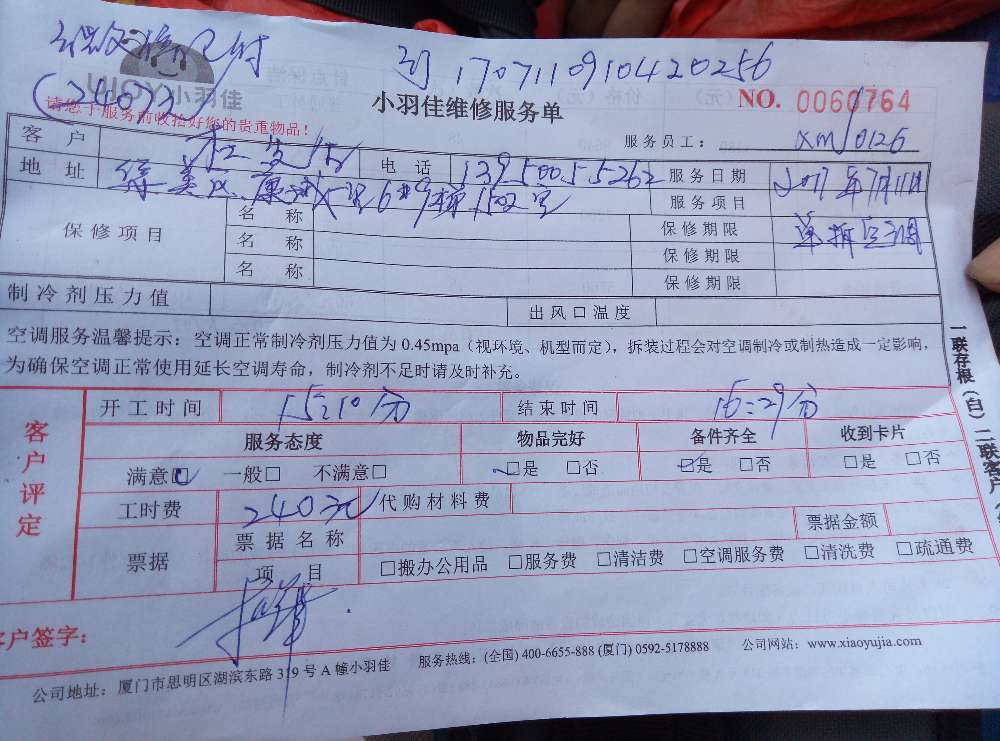 已付
1707110910420256
(240元)
WOY 小羽佳
请您于服务前收拾好您的贵重物品!
小羽佳维修服务单
NO. 0060764
服务员工: xm10126
客户
电话 13950055262
服务日期 2017年7月11日
地址 集美区 6#9梯1502室
服务项目 单拆空调
保修项目
名称 保修期限
名称 保修期限
名称 保修期限
制冷剂压力值 出风口温度
空调服务温馨提示:空调正常制冷剂压力值为 0.45mpa(视环境、机型而定),拆装过程会对空调制冷或制热造成一定影响,
为确保空调正常使用延长空调寿命,制冷剂不足时请及时补充。
客户评定
开工时间 15:10分 结束时间 16:29分
服务态度 物品完好 备件齐全 收到卡片
满意□ 一般□ 不满意□ □是 □否 □是 □否 □是 □否
工时费 240元 代购材料费
票据 票据名称 票据金额
项目 □搬办公用品 □服务费 □清洁费 □空调服务费 □清洗费 □疏通费
客户签字:
公司地址:厦门市思明区湖滨东路 319 号 A 幢小羽佳 服务热线:(全国) 400-6655-888 (厦门) 0592-5178888 公司网站:www.xiaoyujia.com
一联存根(白) 二联客户